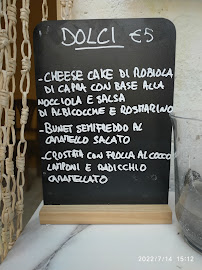 DOLCI €5
- CHEESE CAKE DI ROBIOLA
DI CAPRA CON BASE ALLA
NOCCIOLA E SALSA
DI ALBICOCCHE E ROSMARINO
- BUNET SEMIFREDDO AL
CARAMELLO SALATO
- CROSTATA CON FROLLA AL COCCO
LAMPONI E RADICCHIO
CARAMELLATO
2022/7/14 15:12